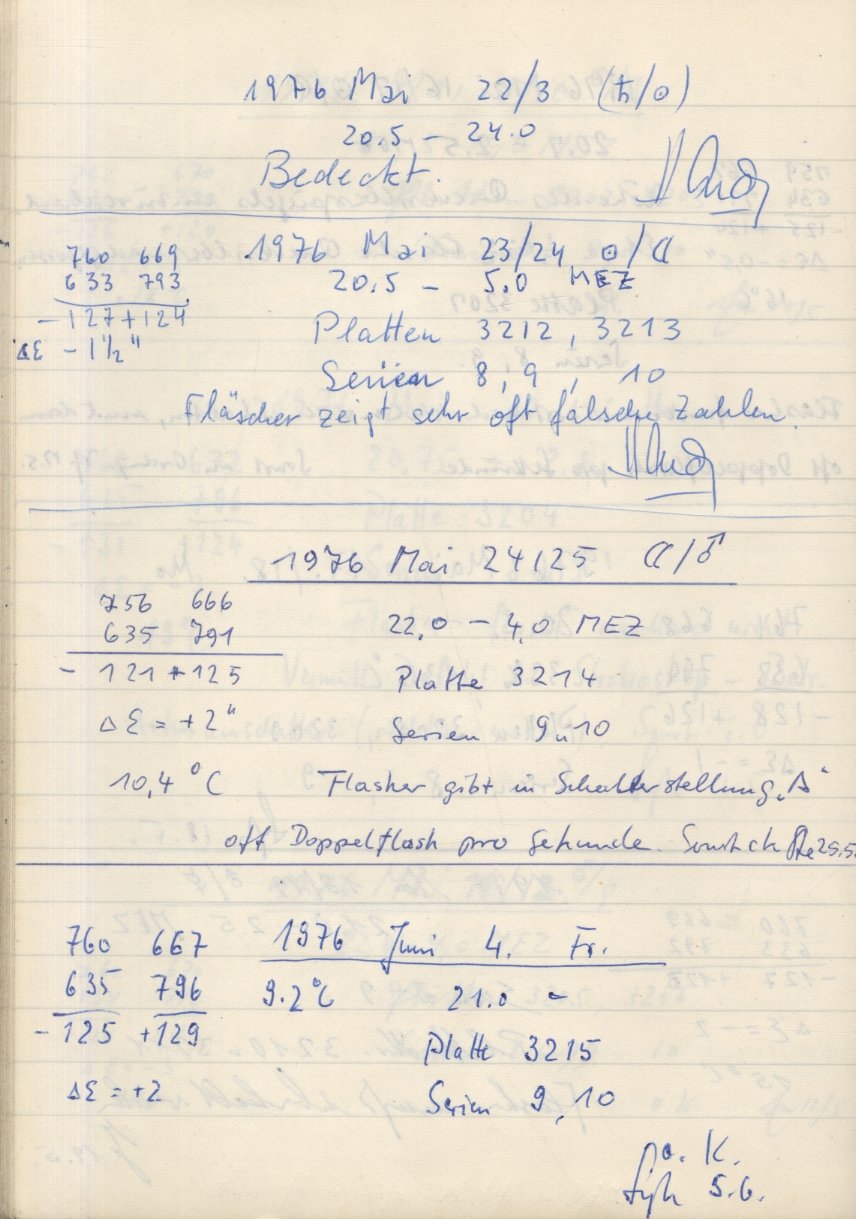 1976 Mai 22/3 (♄/☉)
20.5 – 24.0
Bedeckt.
760 669 1976 Mai 23/24 ☉/☾
633 793 20.5 – 5.0 MEZ
-127 +124 Platten 3212, 3213
Δε – 1½"
Serien 8, 9, 10
Fläscher zeigt sehr oft falsche Zahlen.
1976 Mai 24/25 ☾/♂
756 666
635 791 22,0 – 4,0 MEZ
- 121 + 125 Platte 3214
Δε = +2" Serien 9 u 10
10,4 °C Flasher gibt in Schalterstellung „A"
oft Doppelflash pro Sekunde. Sonst ok 25.5.
760 667 1976 Juni 4. Fr.
635 796 9.2°C 21.0 –
-125 +129 Platte 3215
Δε = +2 Serien 9, 10
K.
5.6.